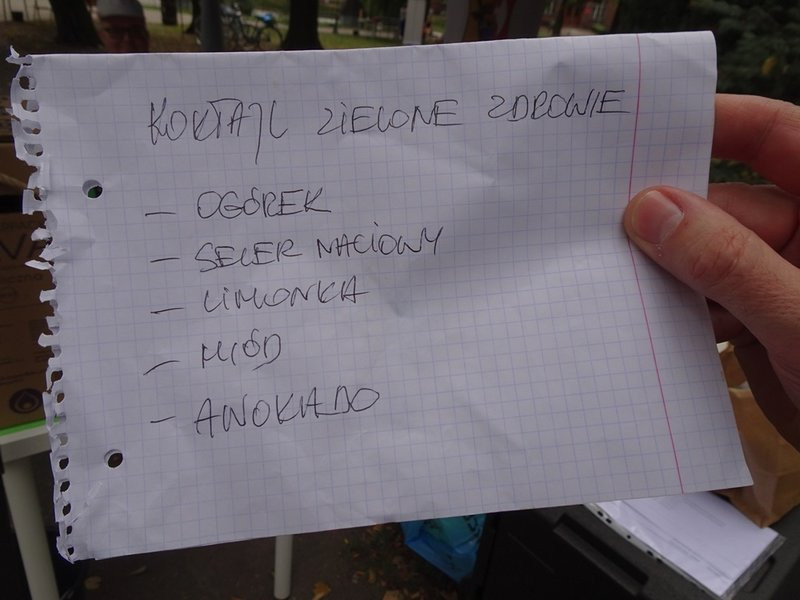 KOKTAJL ZIELONE ZDROWIE
– OGÓREK
– SELER NACIOWY
– LIMONKA
– MIÓD
– AWOKADO